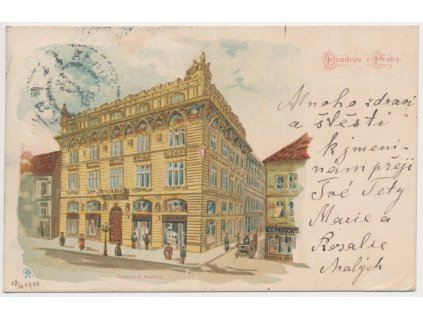 Pozdrav z Prahy.
Mnoho zdraví
a štěstí
k jmeni-
nám přejí
Tvé Tety
Marie a
Rosalie
Malých
Zemská banka